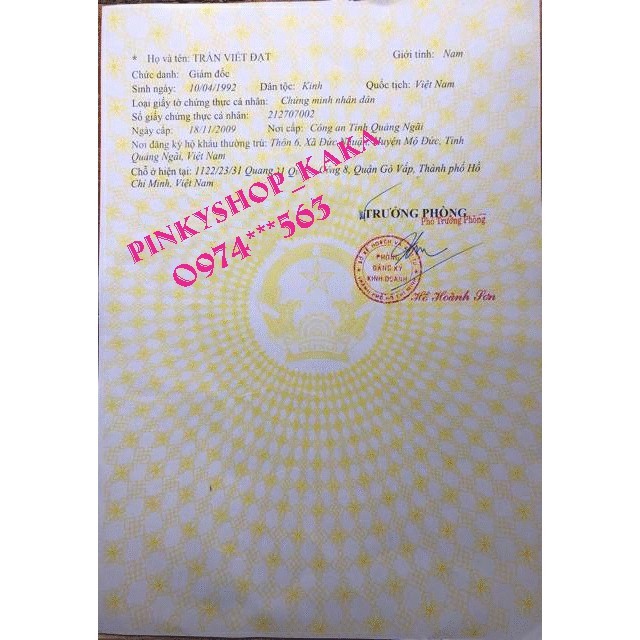 * Họ và tên: TRẦN VIẾT ĐẠT Giới tính: Nam
Chức danh: Giám đốc
Sinh ngày: 10/04/1992 Dân tộc: Kinh Quốc tịch: Việt Nam
Loại giấy tờ chứng thực cá nhân: Chứng minh nhân dân
Số giấy chứng thực cá nhân: 212707002
Ngày cấp: 18/11/2009 Nơi cấp: Công an Tỉnh Quảng Ngãi
Nơi đăng ký hộ khẩu thường trú: Thôn 6, Xã Đức Nhuận, Huyện Mộ Đức, Tỉnh
Quảng Ngãi, Việt Nam
Chỗ ở hiện tại: 1122/23/31 Quang 8, Quận Gò Vấp, Thành phố Hồ
Chí Minh, Việt Nam
PINKYSHOP_KAKA
0974***563
TRƯỞNG PHÒNG
Phó Trưởng Phòng
PHÒNG
ĐĂNG KÝ
KINH DOANH
Hồ Hoành Sơn